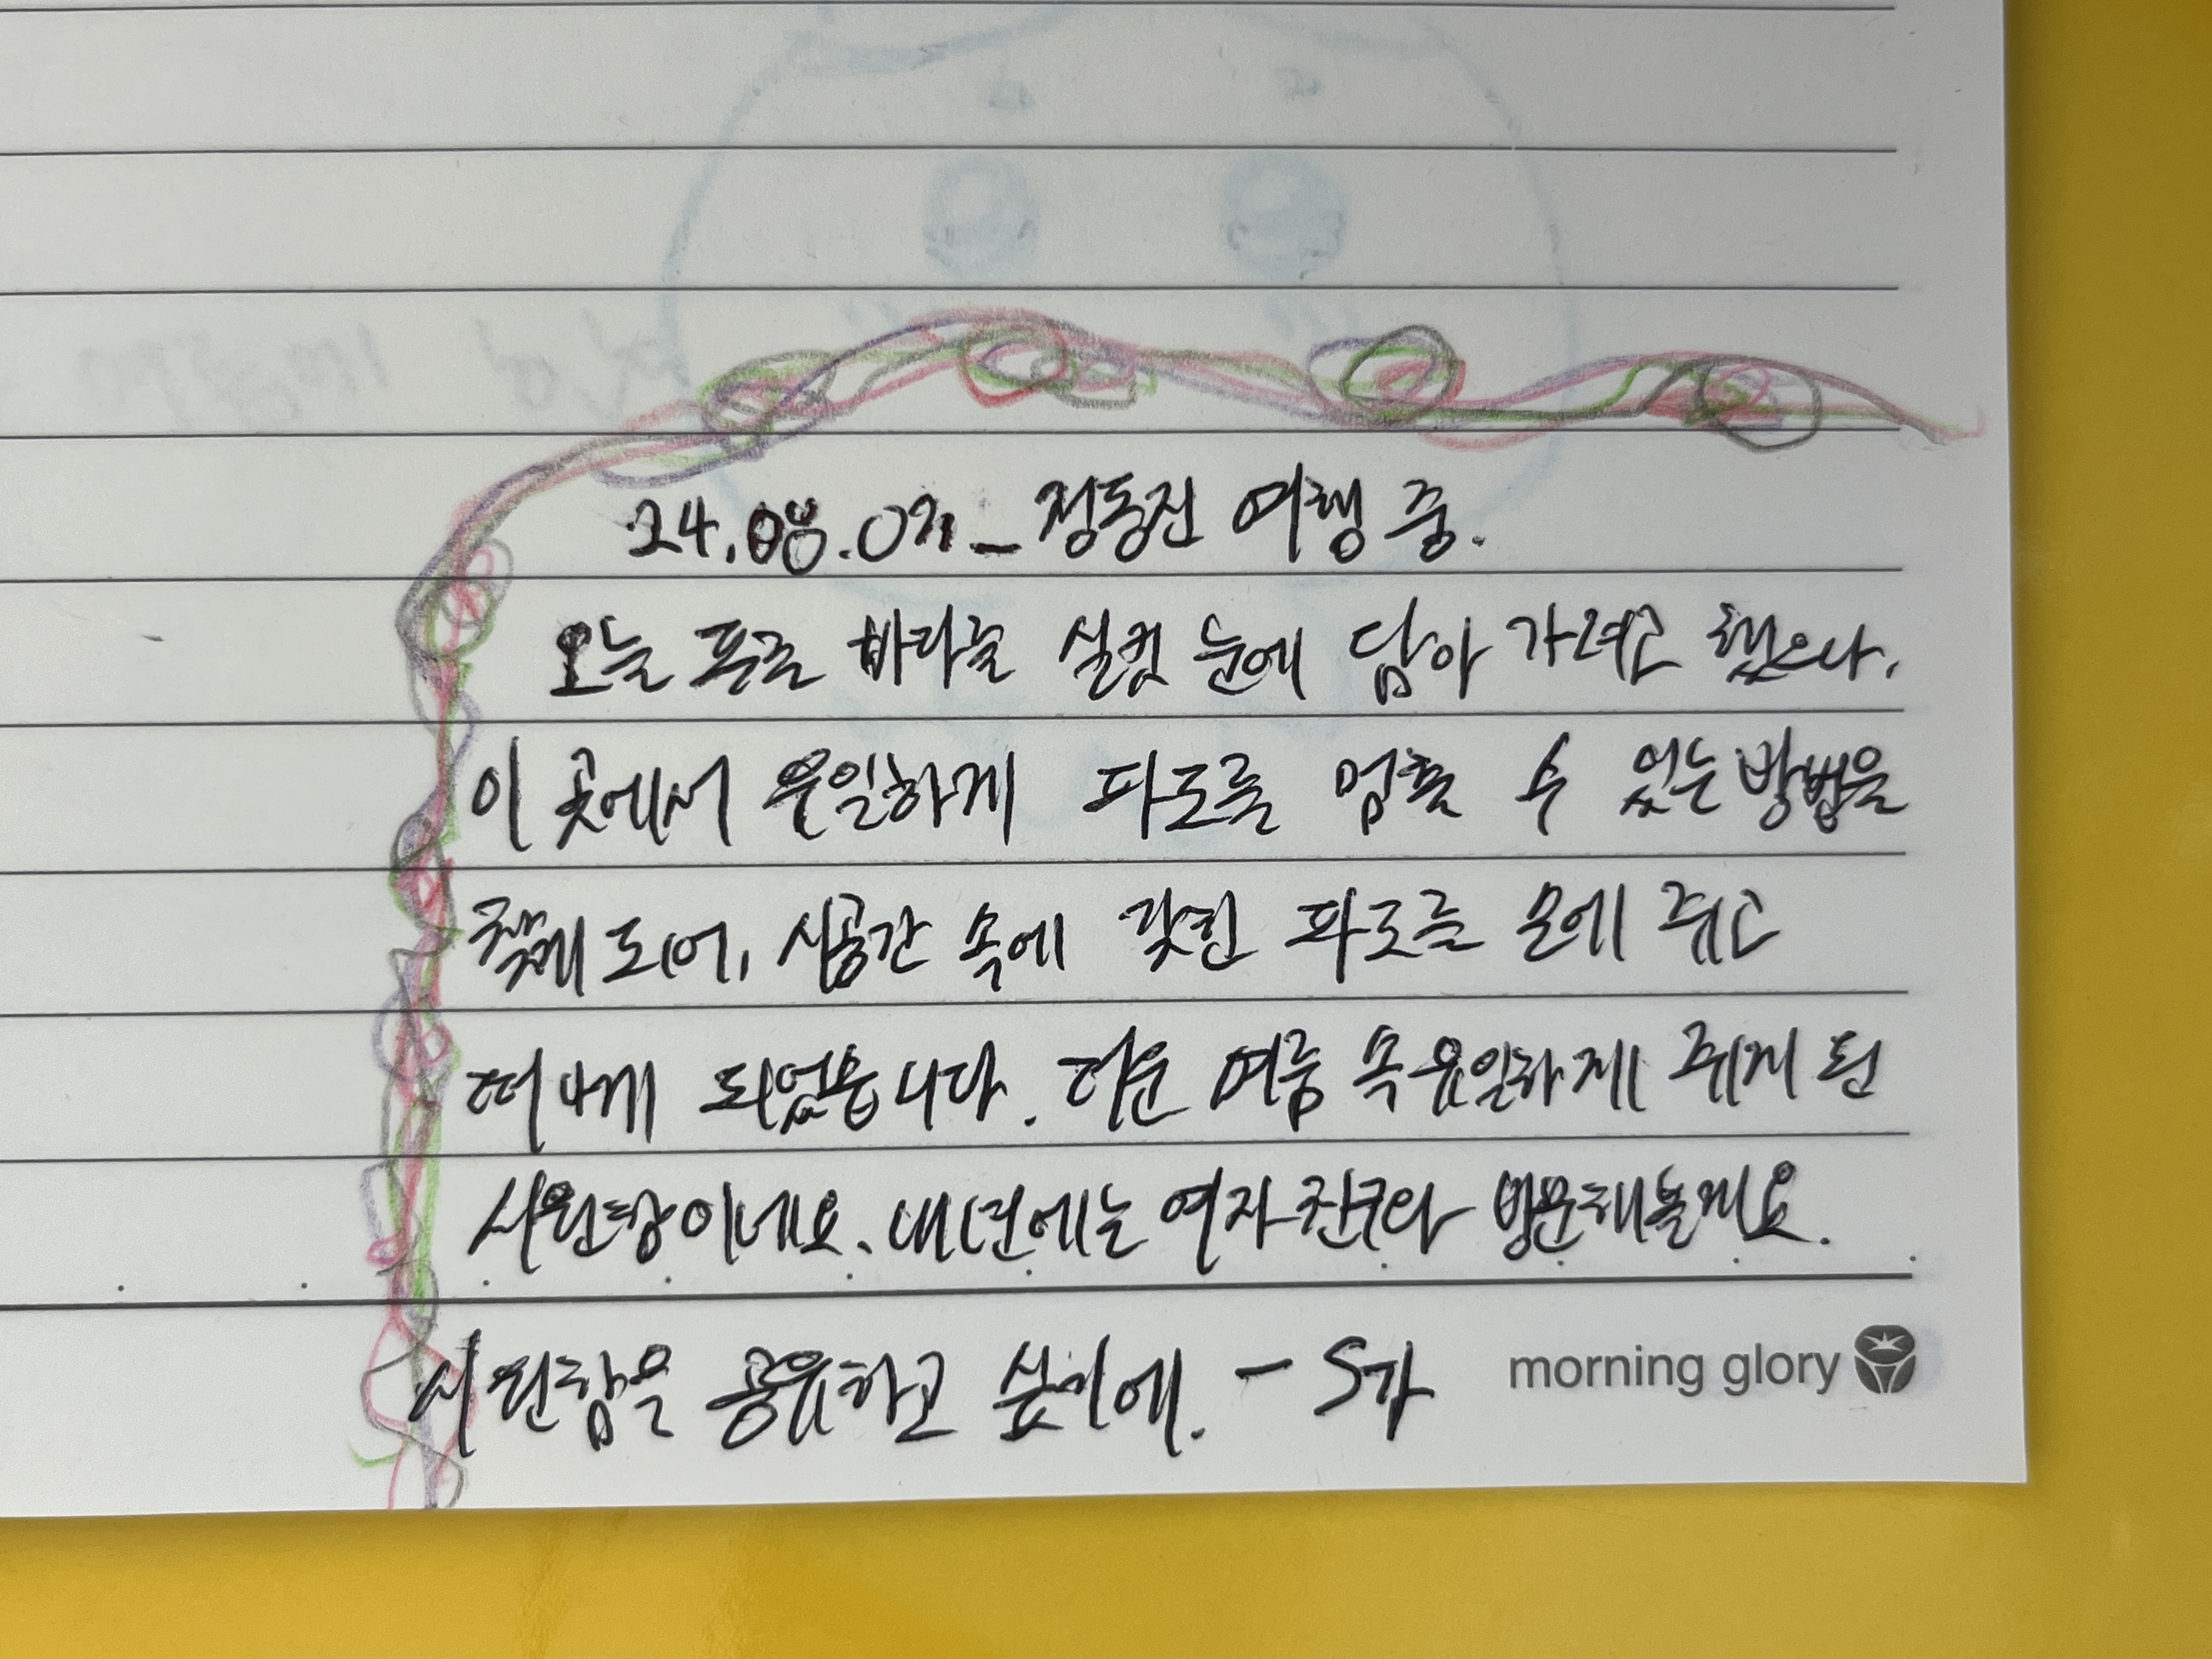 24.08.07_정동진 여행 중.
오늘 푸른 바다를 실컷 눈에 담아 가려고 했으나,
이 곳에서 유일하게 파도를 멈출 수 있는 방법을
찾게 되어, 시공간 속에 갖힌 파도를 손에 쥐고
떠나게 되었습니다. 더운 여름 속 유일하게 쥐게 된
시원함이네요. 내년에는 여자친구와 방문해볼게요.
시원함을 공유하고 싶기에. - S가
morning glory